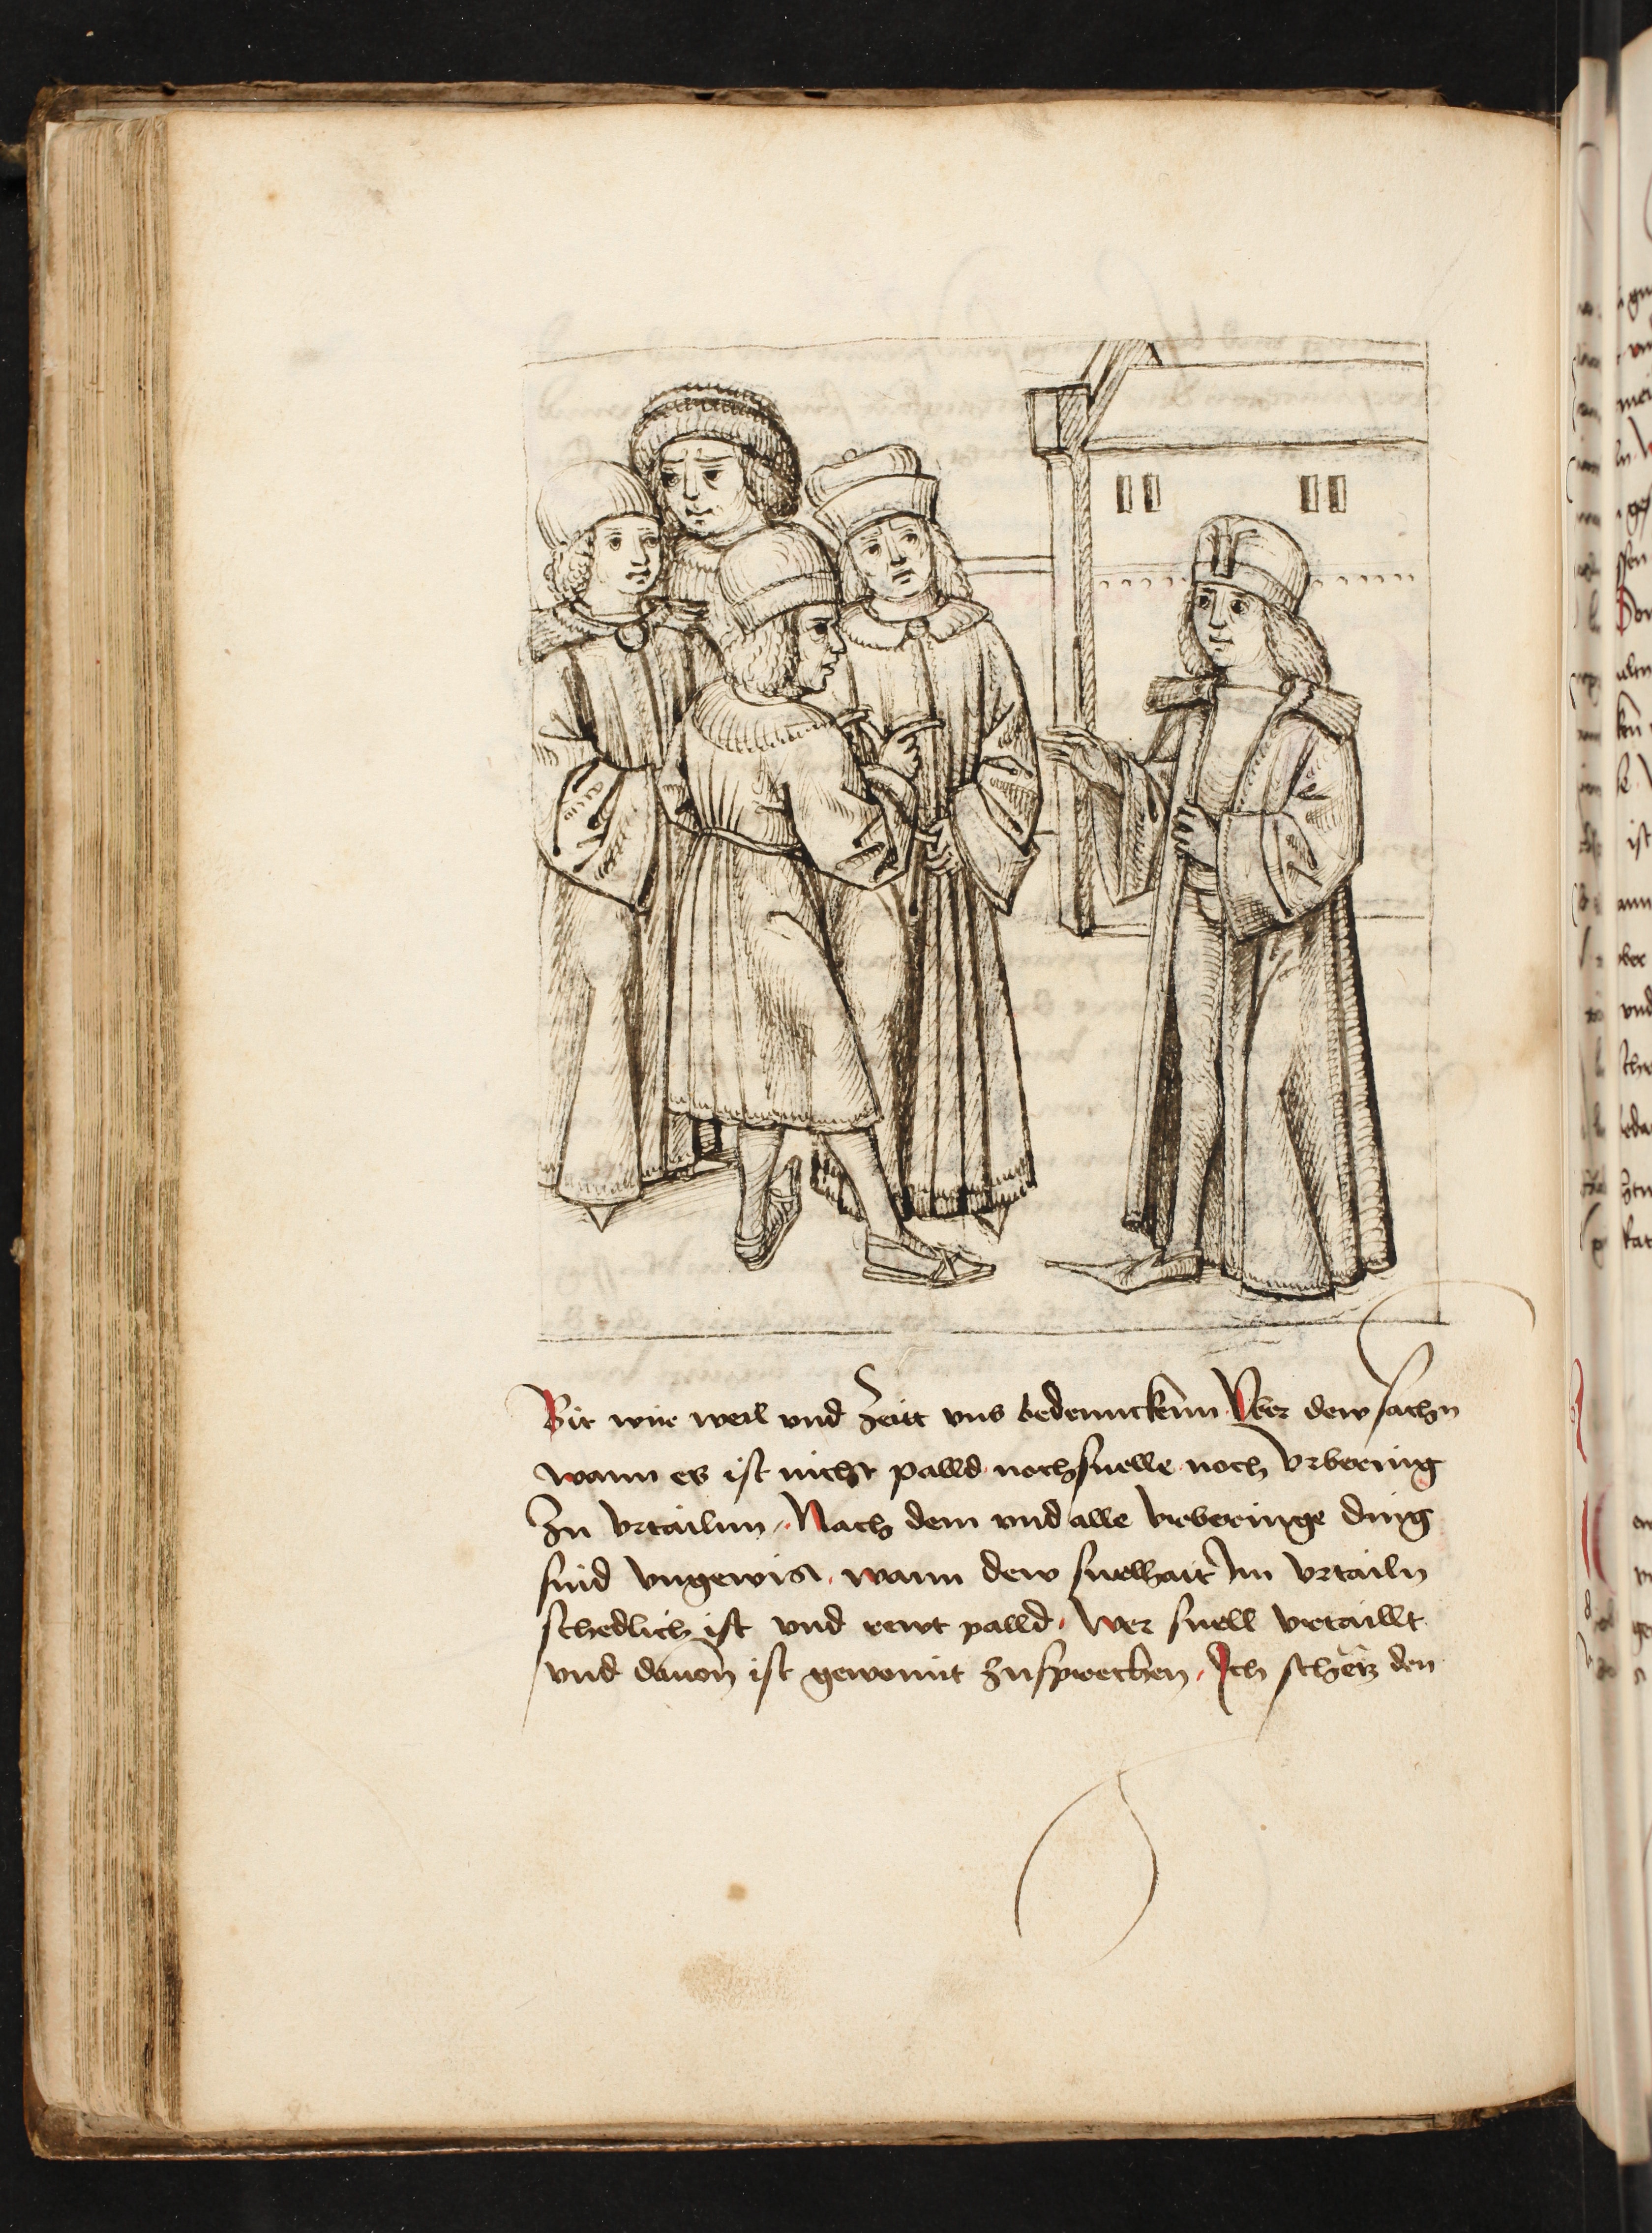 Bit wir weil vnd Zeitt vns bedennckenn Vber dew sachn
wann es ist nicht palld noch snelle noch Vrbering
Zu vrtailnn Nach dem vnd alle vrberinge ding
sind vngewis wann dew snelhait Im vrtailn
schedlich ist vnd rewt palld wer snell vrtaillt
vnd dauon ist gewonnt zusprechen Ich schetz den